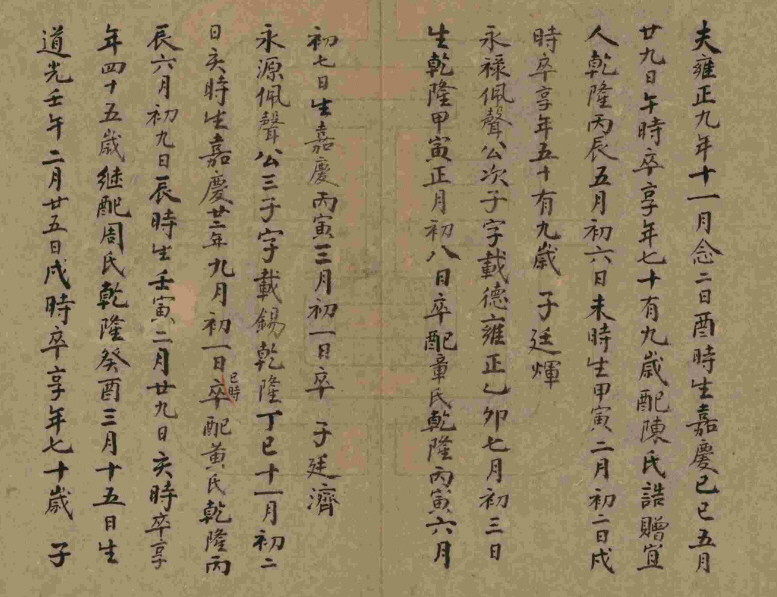 夫雍正九年十一月念二日酉時生嘉慶己巳五月
廿九日午時卒享年七十有九歲配陳氏誥贈宜
人乾隆丙辰五月初六日未時生甲寅二月初二日戌
時卒享年五十有九歲 子廷煇
永祿佩聲公次子字載德雍正乙卯七月初三日
生乾隆甲寅正月初八日卒配章氏乾隆丙寅六月
初七日生嘉慶丙寅三月初一日卒 子廷濟
永源佩聲公三子字載錫乾隆丁巳十一月初二
日亥時生嘉慶廿二年九月初一日巳時卒配黃氏乾隆丙
辰六月初九日辰時生壬寅二月廿九日亥時卒享
年四十五歲继配周氏乾隆癸酉三月十五日生
道光壬午二月廿五日戌時卒享年七十歲 子